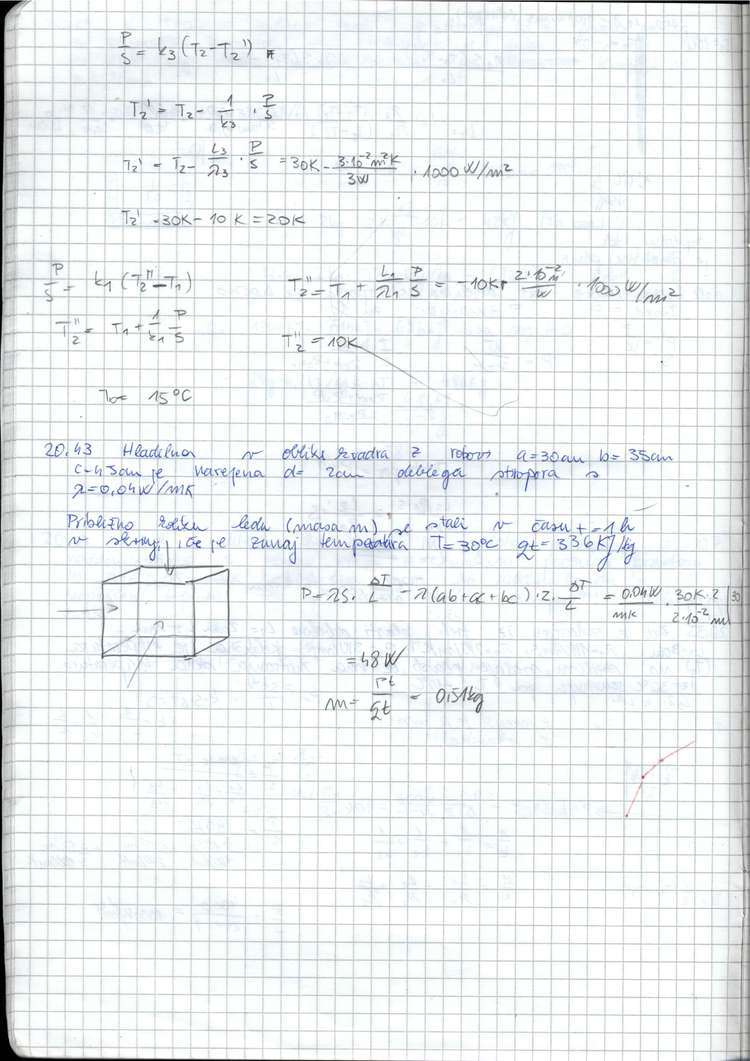 P/S = k₃(T₂-T₂')
T₂' = T₂ - 1/k₃ · P/S
T₂' = T₂ - L₃/λ₃ · P/S = 30K - 3·10⁻²m²K/3W · 1000 W/m²
T₂' = 30K - 10K = 20K
P/S = k₁(T₂''-T₁)   T₂'' = T₁ + L₁/λ₁ P/S = -10K + 2·10⁻²/W · 1000 W/m²
T₂'' = T₁ + 1/k₁ P/S   T₂'' = 10K
= 15°C
20.43 Hladilna v obliki kvadra z robovi a=30cm b=35cm
c=45cm je narejena d= 2cm debelega stiropora s
λ=0.04W/mK
Približno koliko ledu (masa m) se stali v času t=1h
v skrinji, če je zunaj temperatura T=30°C qt=336KJ/kg
P = λS · ΔT/L = λ(ab+ac+bc)·2·ΔT/L = 0.04W/mK · 30K·2/2·10⁻²m
=48W
m= Pt/qt = 0,51kg